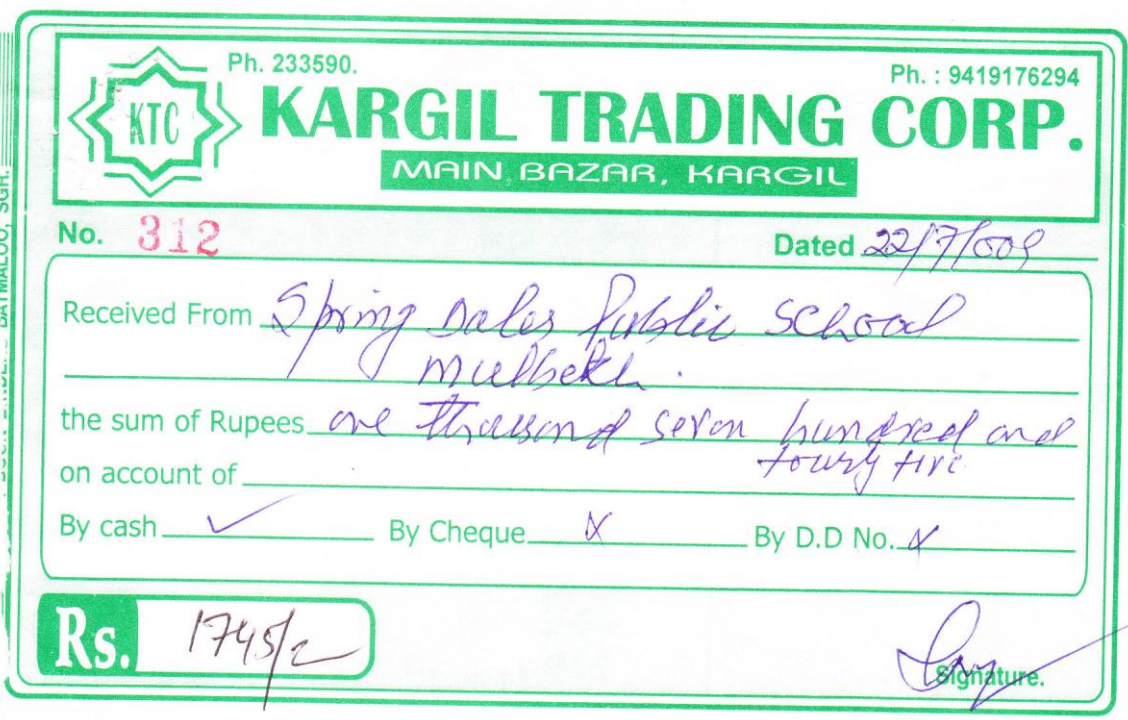 Ph. 233590.
Ph. : 9419176294
KTC
KARGIL TRADING CORP.
MAIN BAZAR, KARGIL
No. 312
Dated 22/7/009
Received From Spring Dales Public School
Mulbekh.
the sum of Rupees one thousand seven hundred and
fourty five
on account of
By cash ✓ By Cheque X By D.D No. X
Rs. 1745/=
Signature.
BATMALOO, SGR.